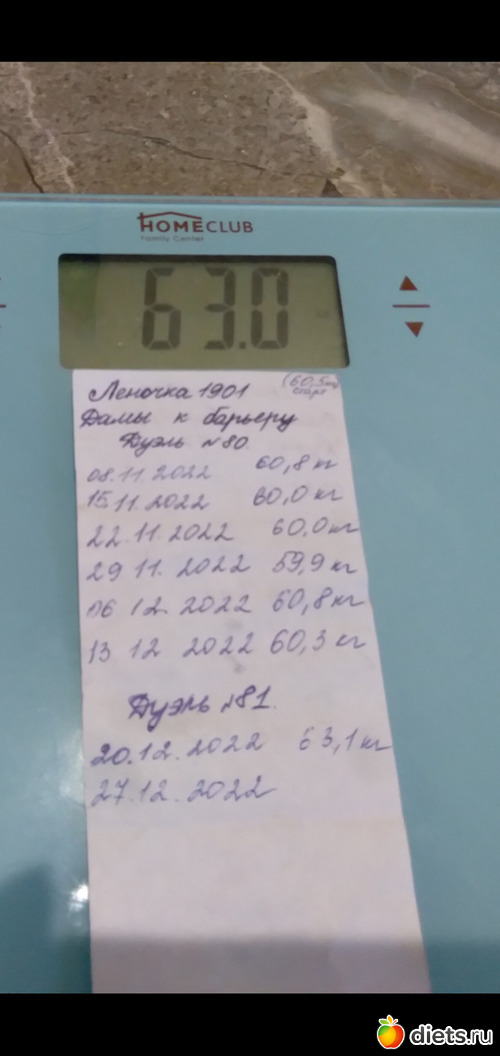 HOMECLUB
Family Center
63.0
Леночка 1901 (60,5кг
старт
Дамы к барьеру
Дуэль №80.
08.11.2022 60,8 кг
15.11.2022 60,0 кг
22.11.2022 60,0 кг
29 11. 2022 59,9 кг
06 12. 2022 60,8 кг
13 12 2022 60,3 кг
Дуэль №81.
20.12.2022 63,1 кг
27.12.2022
diets.ru